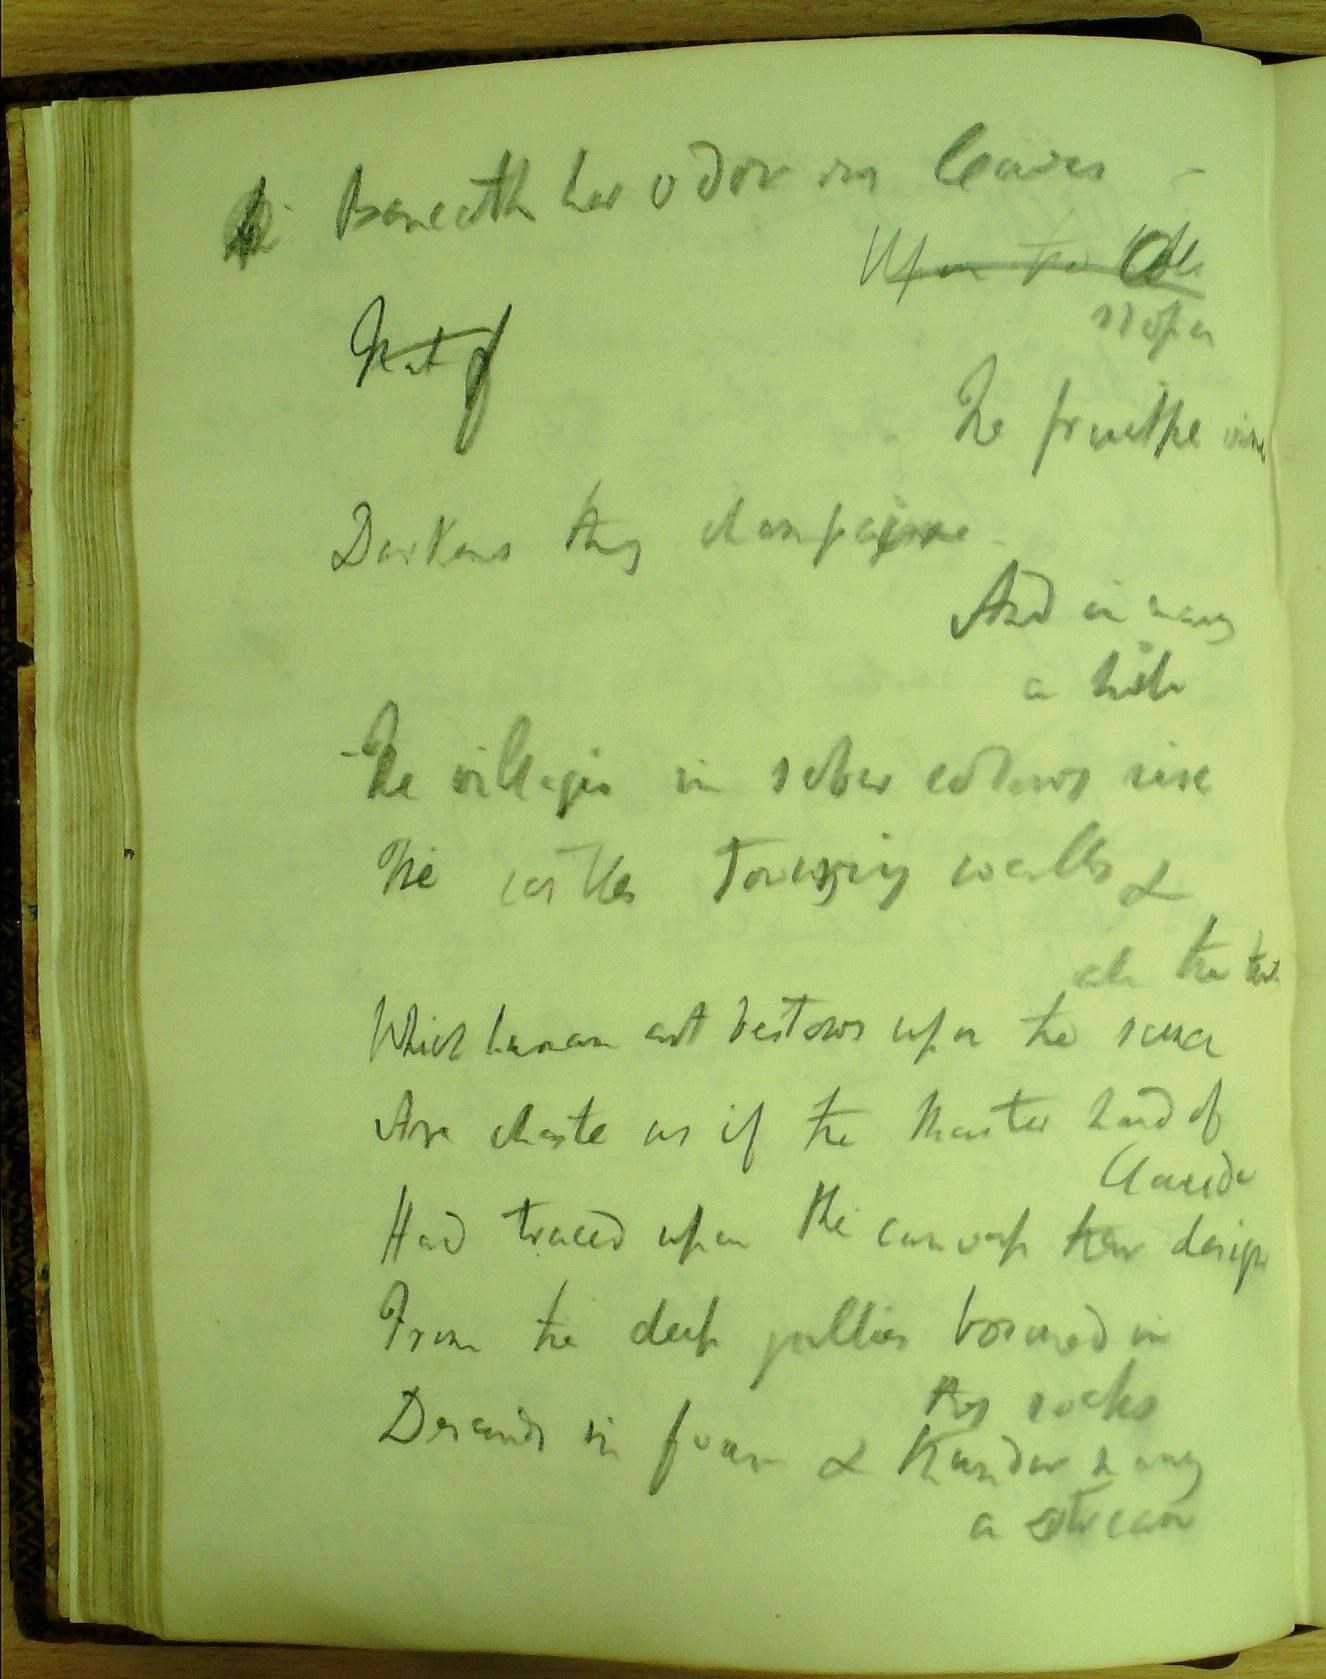 Beneath her odorous leaves -
Upon the
slopes
The fruitful vine
Not of
Darkens thy champaigne -
And in many
a hill
The villages in sober colours rise
The castles Towering walls &
all the tints
Which human art bestows upon the scene
Are chaste as if the Master hand of
Claude
Had traced upon the canvass their design
From the deep gullies bosomed in
thy rocks
Descends in foam & thunder many
a stream